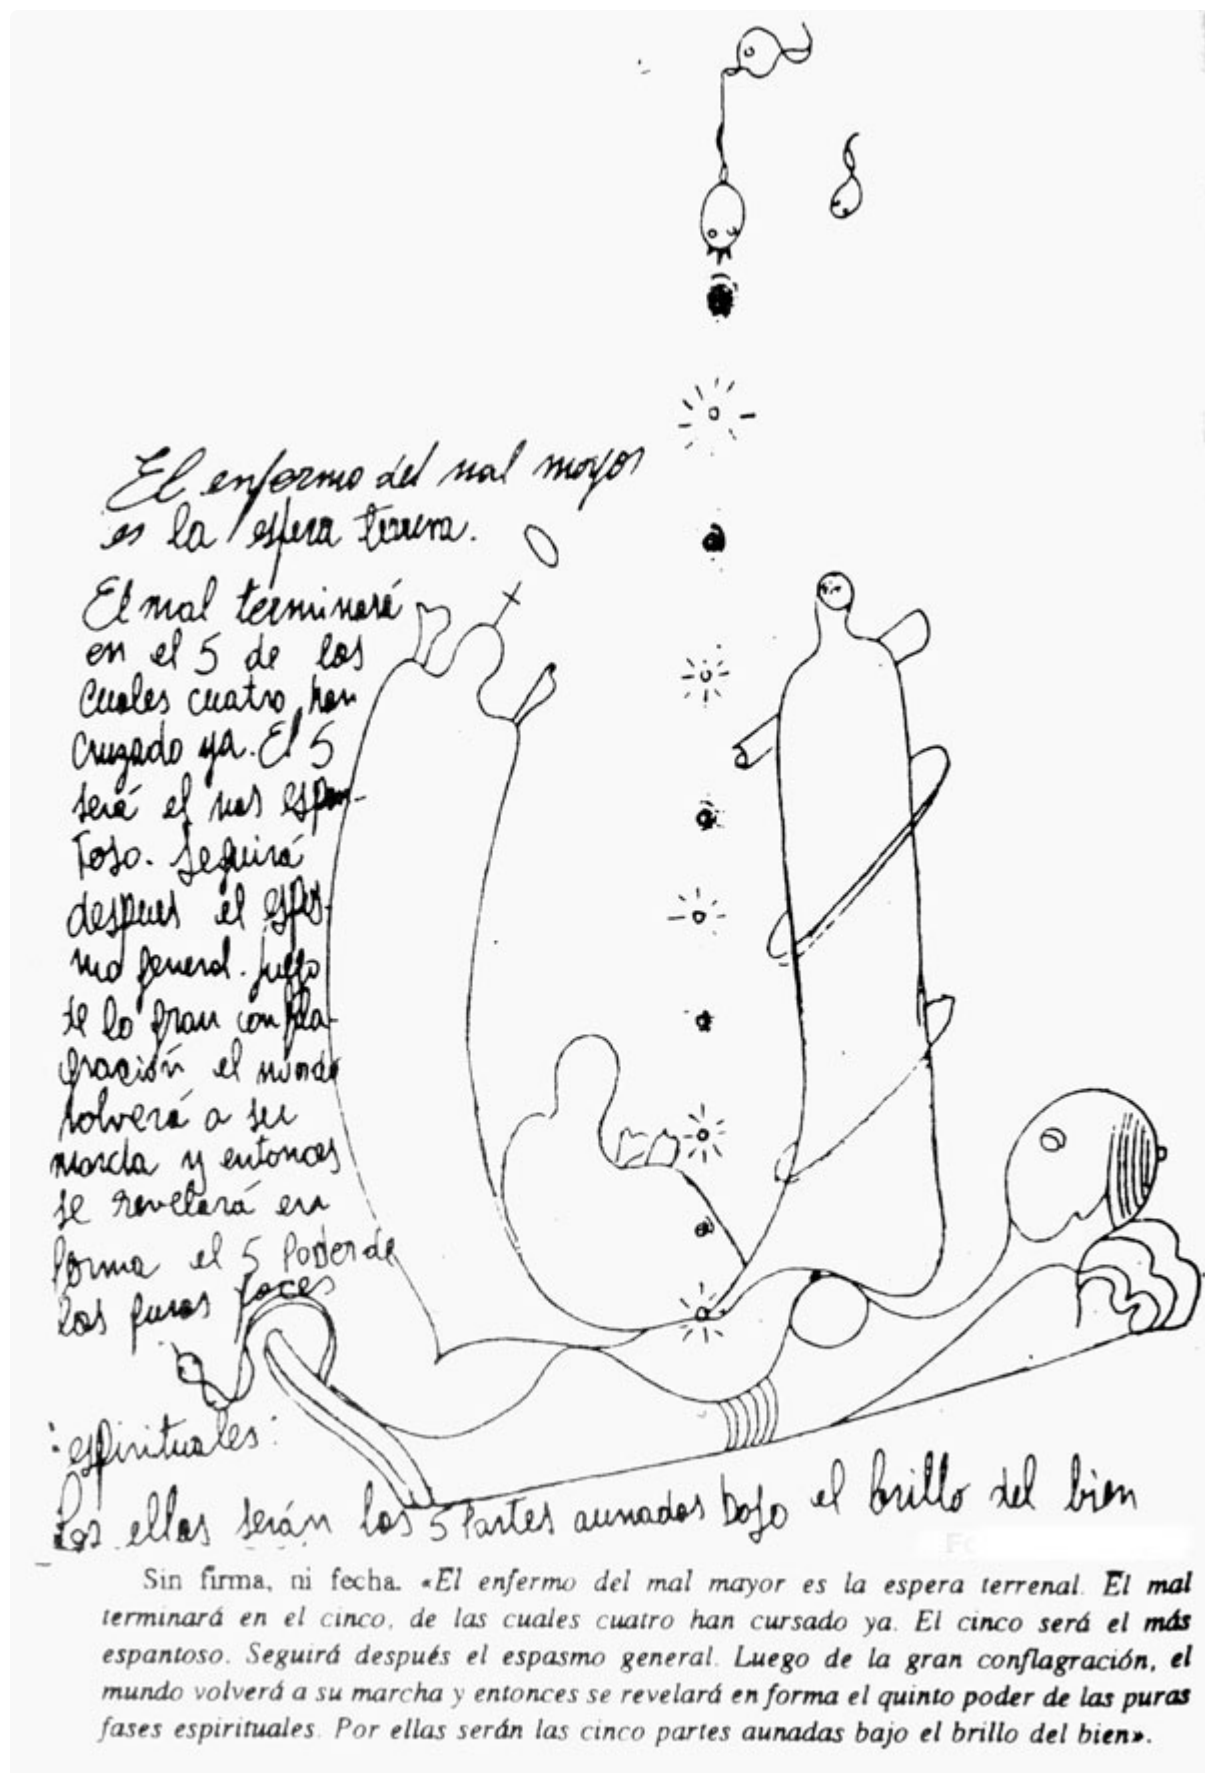 El enfermo del mal mayor
es la esfera terrena.
El mal terminará
en el 5 de los
Cuales cuatro han
Cruzado ya. El 5
será el mas espan-
toso. Seguirá
despues el espas-
mo general. Luego
de la gran confla-
gración el mundo
volverá a su
marcha y entonces
se revelará en
forma el 5 Poder de
las puras faces
espirituales:
Por ellas serán las 5 Partes aunadas bajo el brillo del bien
Sin firma, ni fecha. «El enfermo del mal mayor es la espera terrenal. El mal
terminará en el cinco, de las cuales cuatro han cursado ya. El cinco será el más
espantoso. Seguirá después el espasmo general. Luego de la gran conflagración, el
mundo volverá a su marcha y entonces se revelará en forma el quinto poder de las puras
fases espirituales. Por ellas serán las cinco partes aunadas bajo el brillo del bien».